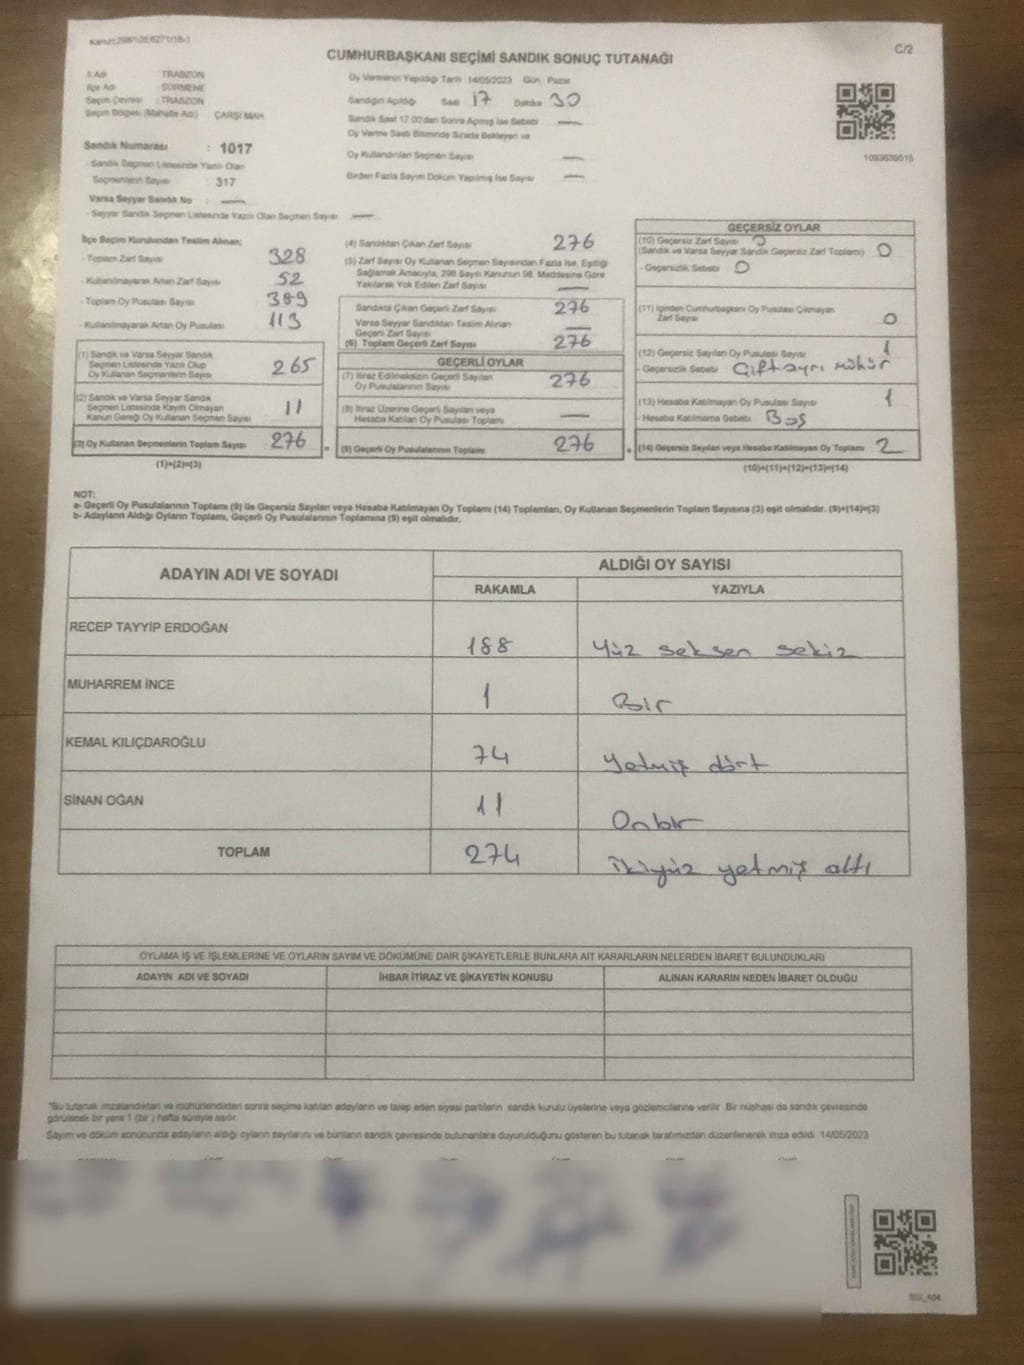 C/2
CUMHURBAŞKANI SEÇİMİ SANDIK SONUÇ TUTANAĞI
İl Adı : TRABZON
İlçe Adı : SÜRMENE
Seçim Çevresi : TRABZON
Seçim Bölgesi (Mahalle Adı) : ÇARŞI MAH.
Sandık Numarası : 1017
- Sandık Seçmen Listesinde Yazılı Olan
Seçmenlerin Sayısı : 317
Varsa Seyyar Sandık No : —
- Seyyar Sandık Seçmen Listesinde Yazılı Olan Seçmen Sayısı —
Oy Vermenin Yapıldığı Tarih : 14/05/2023 Gün : Pazar
Sandığın Açıldığı Saat 17 Dakika 30
Sandık Saat 17:00'dan Sonra Açılmış İse Sebebi —
Oy Verme Saati Bitiminde Sırada Bekleyen ve
Oy Kullandırılan Seçmen Sayısı —
Birden Fazla Sayım Döküm Yapılmış İse Sayısı —
1093639515
İlçe Seçim Kurulundan Teslim Alınan;
- Toplam Zarf Sayısı 328
- Kullanılmayarak Artan Zarf Sayısı 52
- Toplam Oy Pusulası Sayısı 389
- Kullanılmayarak Artan Oy Pusulası 113
(1) Sandık ve Varsa Seyyar Sandık
Seçmen Listesinde Yazılı Olup
Oy Kullanan Seçmenlerin Sayısı 265
(2) Sandık ve Varsa Seyyar Sandık
Seçmen Listesinde Kayıtlı Olmayan
Kanun Gereği Oy Kullanan Seçmen Sayısı 11
(3) Oy Kullanan Seçmenlerin Toplam Sayısı 276 =
(1)+(2)=(3)
(4) Sandıktan Çıkan Zarf Sayısı 276
(5) Zarf Sayısı Oy Kullanan Seçmen Sayısından Fazla İse, Eşitliği
Sağlamak Amacıyla, 298 Sayılı Kanunun 98. Maddesine Göre
Yakılarak Yok Edilen Zarf Sayısı —
Sandıkta Çıkan Geçerli Zarf Sayısı 276
Varsa Seyyar Sandıktan Teslim Alınan
Geçerli Zarf Sayısı —
(6) Toplam Geçerli Zarf Sayısı 276
GEÇERLİ OYLAR
(7) İtiraz Edilmeksizin Geçerli Sayılan
Oy Pusulalarının Sayısı 276
(8) İtiraz Üzerine Geçerli Sayılan veya
Hesaba Katılan Oy Pusulası Toplamı —
(9) Geçerli Oy Pusulalarının Toplamı 276 +
GEÇERSİZ OYLAR
(10) Geçersiz Zarf Sayısı 0
(Sandık ve Varsa Seyyar Sandık Geçersiz Zarf Toplamı) 0
- Geçersizlik Sebebi 0
(11) İçinden Cumhurbaşkanı Oy Pusulası Çıkmayan
Zarf Sayısı 0
(12) Geçersiz Sayılan Oy Pusulası Sayısı 1
- Geçersizlik Sebebi Çift ayrı mühür
(13) Hesaba Katılmayan Oy Pusulası Sayısı 1
- Hesaba Katılmama Sebebi Boş
(14) Geçersiz Sayılan veya Hesaba Katılmayan Oy Toplamı 2
(10)+(11)+(12)+(13)=(14)
NOT:
a- Geçerli Oy Pusulalarının Toplamı (9) ile Geçersiz Sayılan veya Hesaba Katılmayan Oy Toplamı (14) Toplamları, Oy Kullanan Seçmenlerin Toplam Sayısına (3) eşit olmalıdır. (9)+(14)=(3)
b- Adayların Aldığı Oyların Toplamı, Geçerli Oy Pusulalarının Toplamına (9) eşit olmalıdır.
ADAYIN ADI VE SOYADI ALDIĞI OY SAYISI
RAKAMLA YAZIYLA
RECEP TAYYİP ERDOĞAN 188 Yüz seksen sekiz
MUHARREM İNCE 1 Bir
KEMAL KILIÇDAROĞLU 74 Yetmiş dört
SİNAN OĞAN 11 Onbir
TOPLAM 274 ikiyüz yetmiş altı
OYLAMA İŞ VE İŞLEMLERİNE VE OYLARIN SAYIM VE DÖKÜMÜNE DAİR ŞİKAYETLERLE BUNLARA AİT KARARLARIN NELERDEN İBARET BULUNDUKLARI
ADAYIN ADI VE SOYADI İHBAR İTİRAZ VE ŞİKAYETİN KONUSU ALINAN KARARIN NEDEN İBARET OLDUĞU
"Bu tutanak imzalandıktan ve mühürlendikten sonra seçime katılan adayların ve talep eden siyasi partilerin sandık kurulu üyelerine veya gözlemcilerine verilir. Bir nüshası da sandık çevresinde
görülecek bir yere 1 (bir) hafta süreyle asılır.
Sayım ve döküm sonucunda adayların aldığı oyların sayılarını ve bunların sandık çevresinde bulunanlara duyurulduğunu gösteren bu tutanak tarafımızdan düzenlenerek imza edildi. 14/05/2023